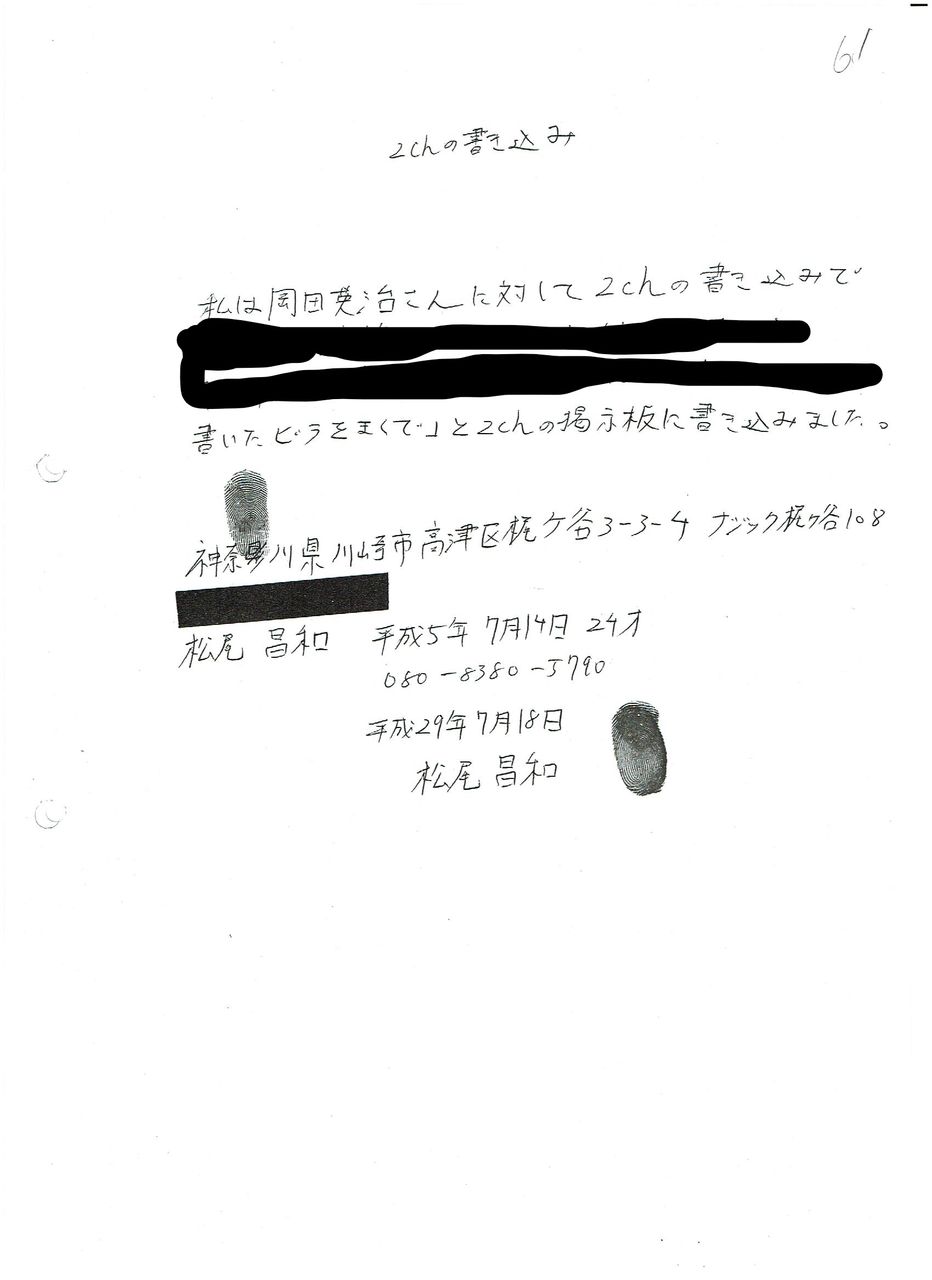 61
2chの書き込み
私は岡田英治さんに対して2chの書き込みで
書いたビラをまくで」と2chの掲示板に書き込みました。
神奈川県川崎市高津区梶ケ谷3-3-4 ナジック梶ケ谷108
松尾 昌和 平成5年7月14日 24才
080-8380-5790
平成29年7月18日
松尾 昌和